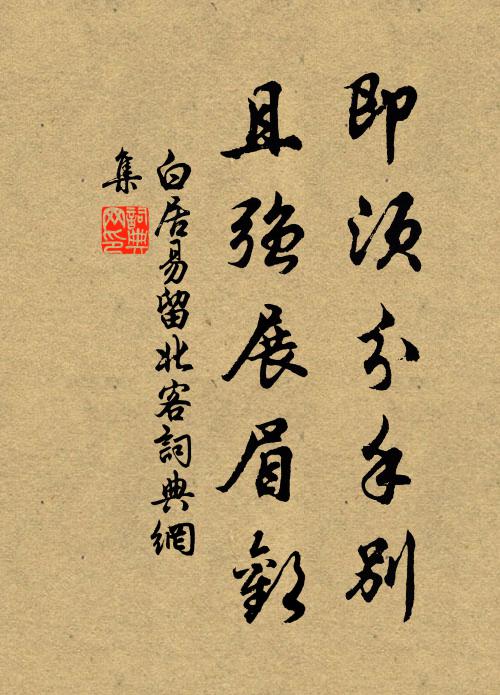 即須分手別
且強展眉歡
白居易留北客詞典網
集
詞典网印